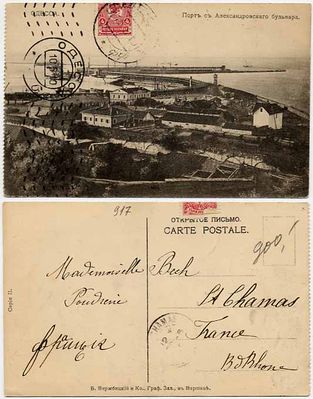 Портъ съ Александровскаго бульвара.
ОДЕССА
917
ОТКРЫТОЕ ПИСЬМО.
CARTE POSTALE.
900,-
Mademoiselle Bech
Poudrerie
St Chamas
France
франція
Bd Rhone
Серія II.
Б. Вержбицкій и Ко., Граф. Зав., въ Варшавѣ.